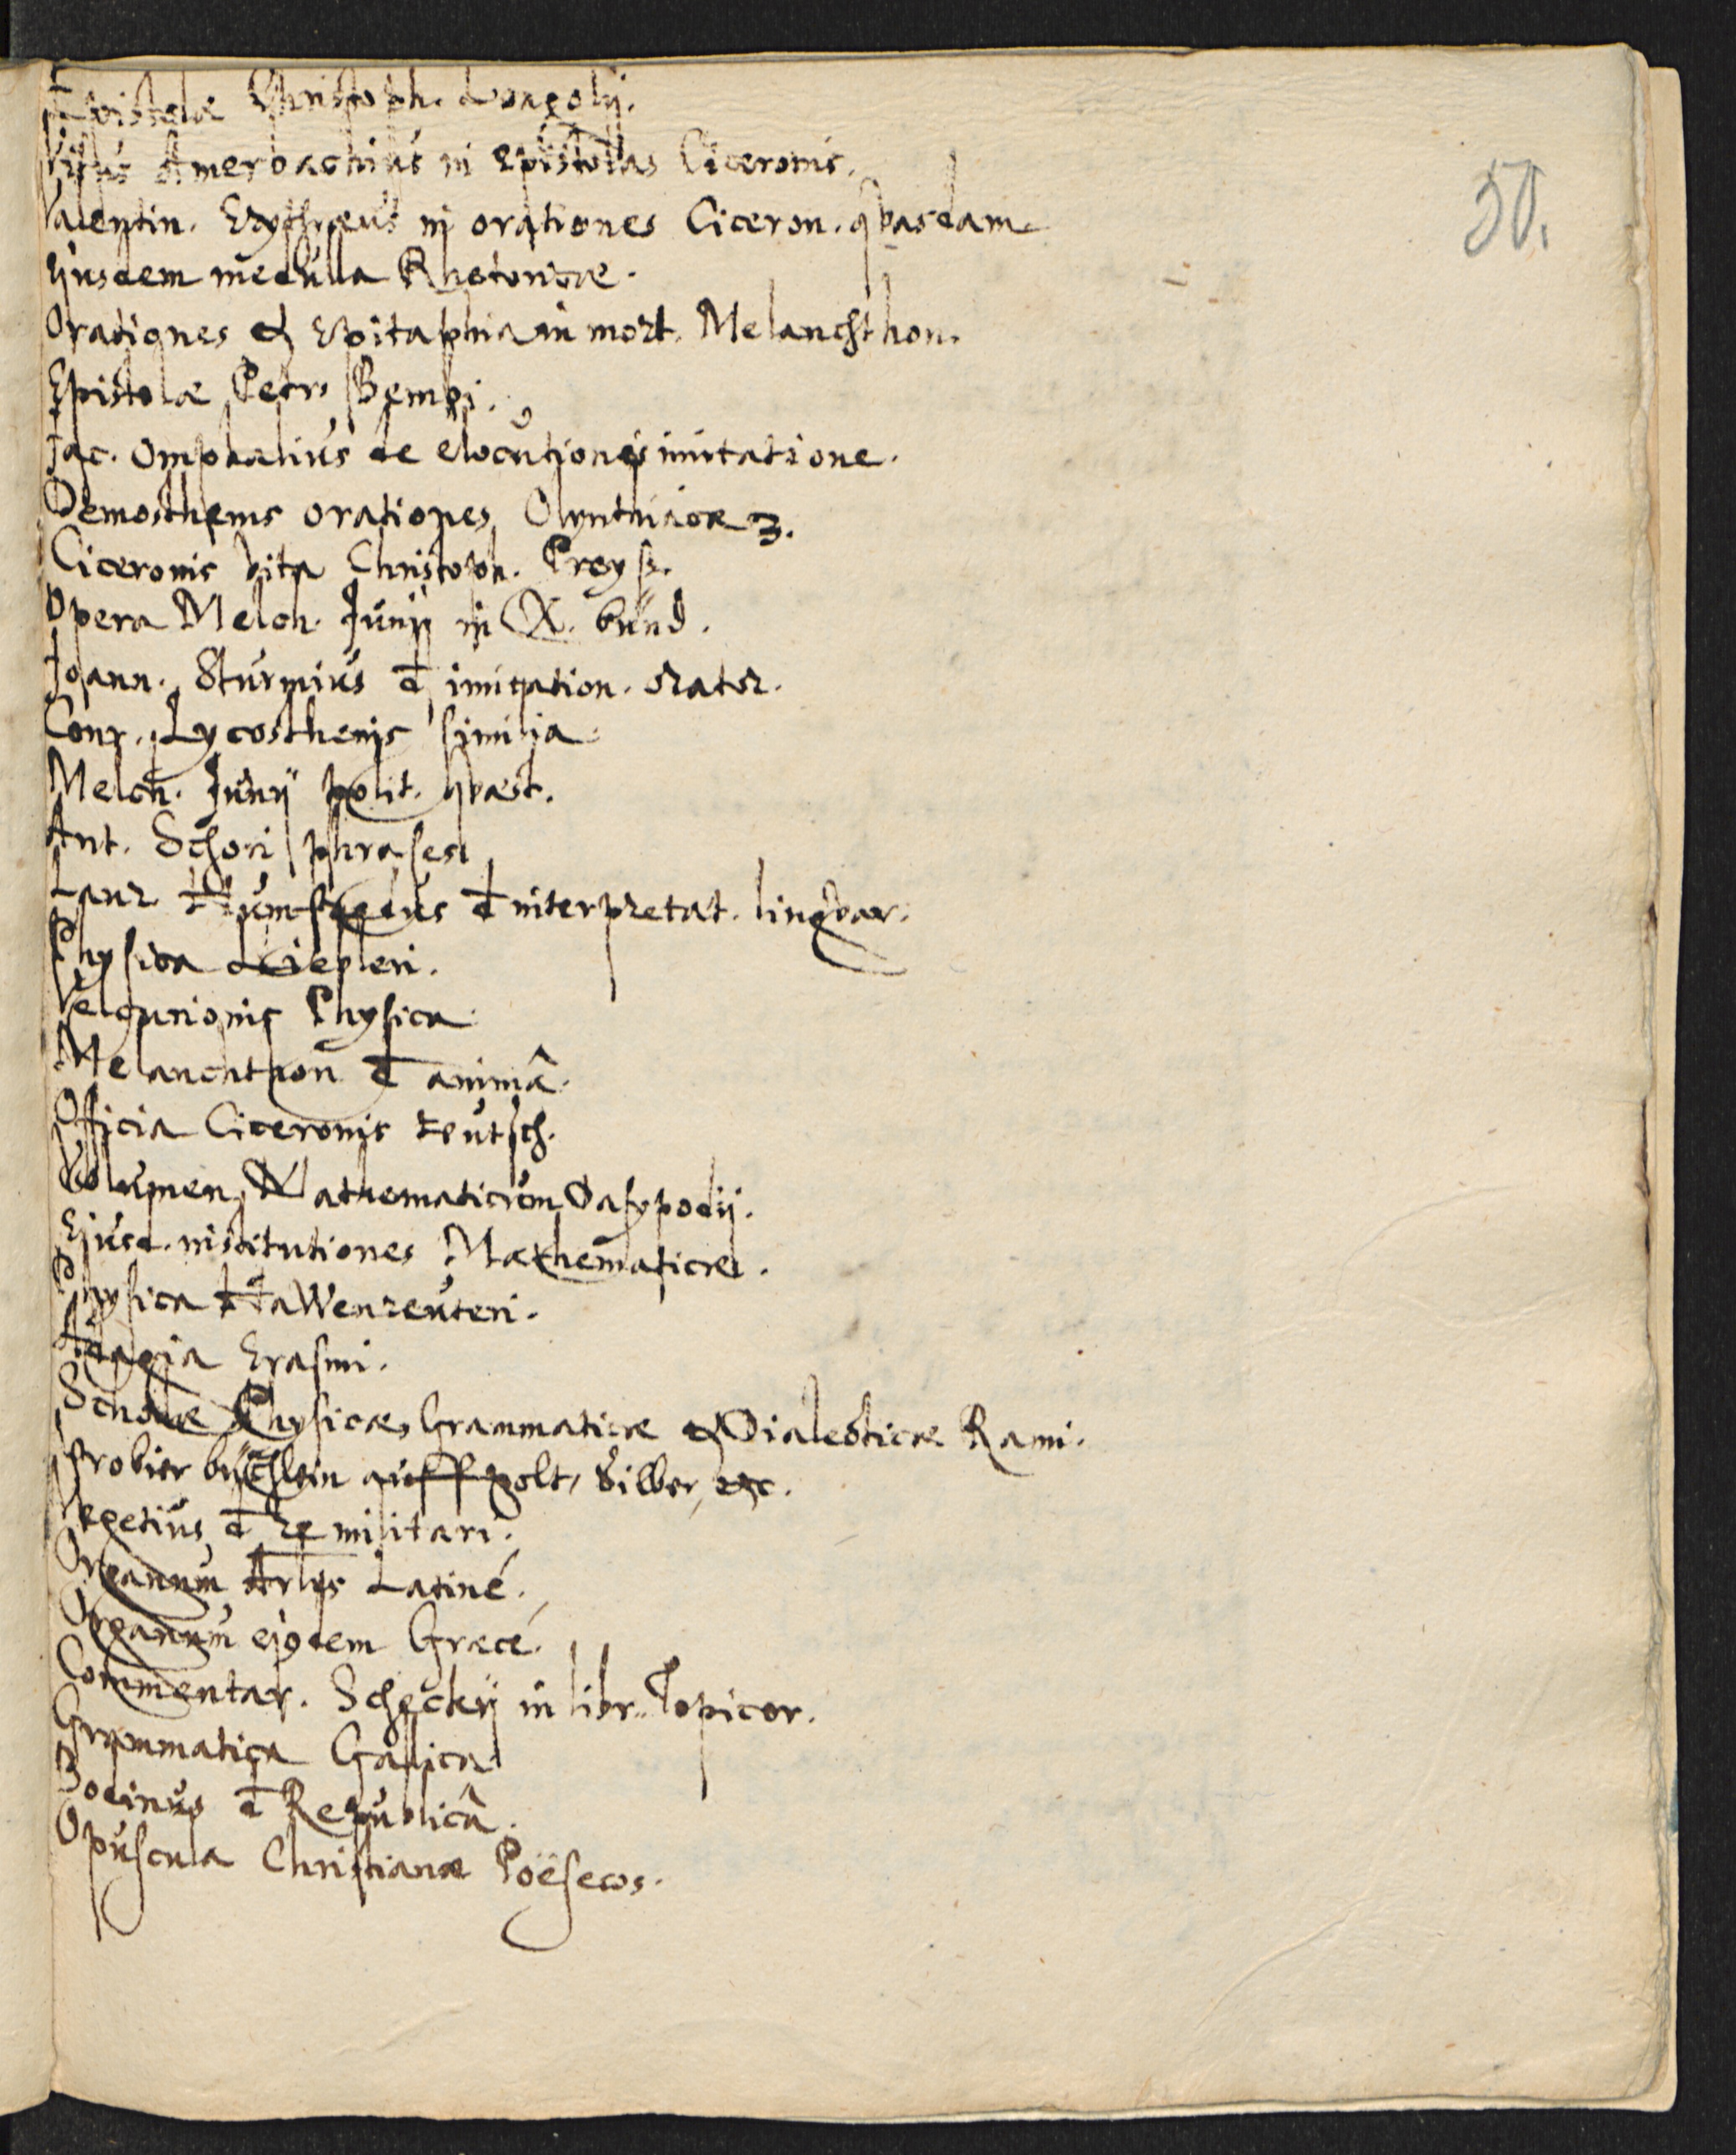 Epistolæ Christoph. Longolij.
Vitus Amerbachius in Epistolas Ciceronis.
50.
Valentin. Erythræus in orationes Ciceron. quasdam.
Ejusdem medulla Rhetoricæ.
Orationes & Epitaphia in mort. Melanchthon.
Epistolæ Petri Bembi.
Jac. Omphalius de elocutionis imitatione.
Demosthenis orationes Olynthiacæ 3.
Ciceronis vita Christoph. Preyss.
Opera Melch. Junij in X. bünd.
Joann. Sturmius d imitation. orator.
Conr. Lycosthenis similia.
Melch. Junij polit. quæst.
Ant. Schori phrases.
Laur. Humfredus d interpretat. linguar.
Physica Liepleri.
Velcurionis Physica.
Melanchthon d animâ.
Officia Ciceronis teutsch.
Volumen Mathematicum Dasypodij.
Ejusd. institutiones Mathematicæ.
Physica Hawenreuteri.
Adagia Erasmi.
Scholæ Physicæ, Grammaticæ & Dialecticæ Rami.
Probier büchlein auff golt, Silber, etc.
Vegetius d re militari.
Organum Arlis Latiné.
Organum ejusdem Græcé.
Commentar. Scheckij in libr. Topicor.
Grammatica Gallica.
Bodinus d Republicâ.
Opuscula Christianæ Poëseωs.